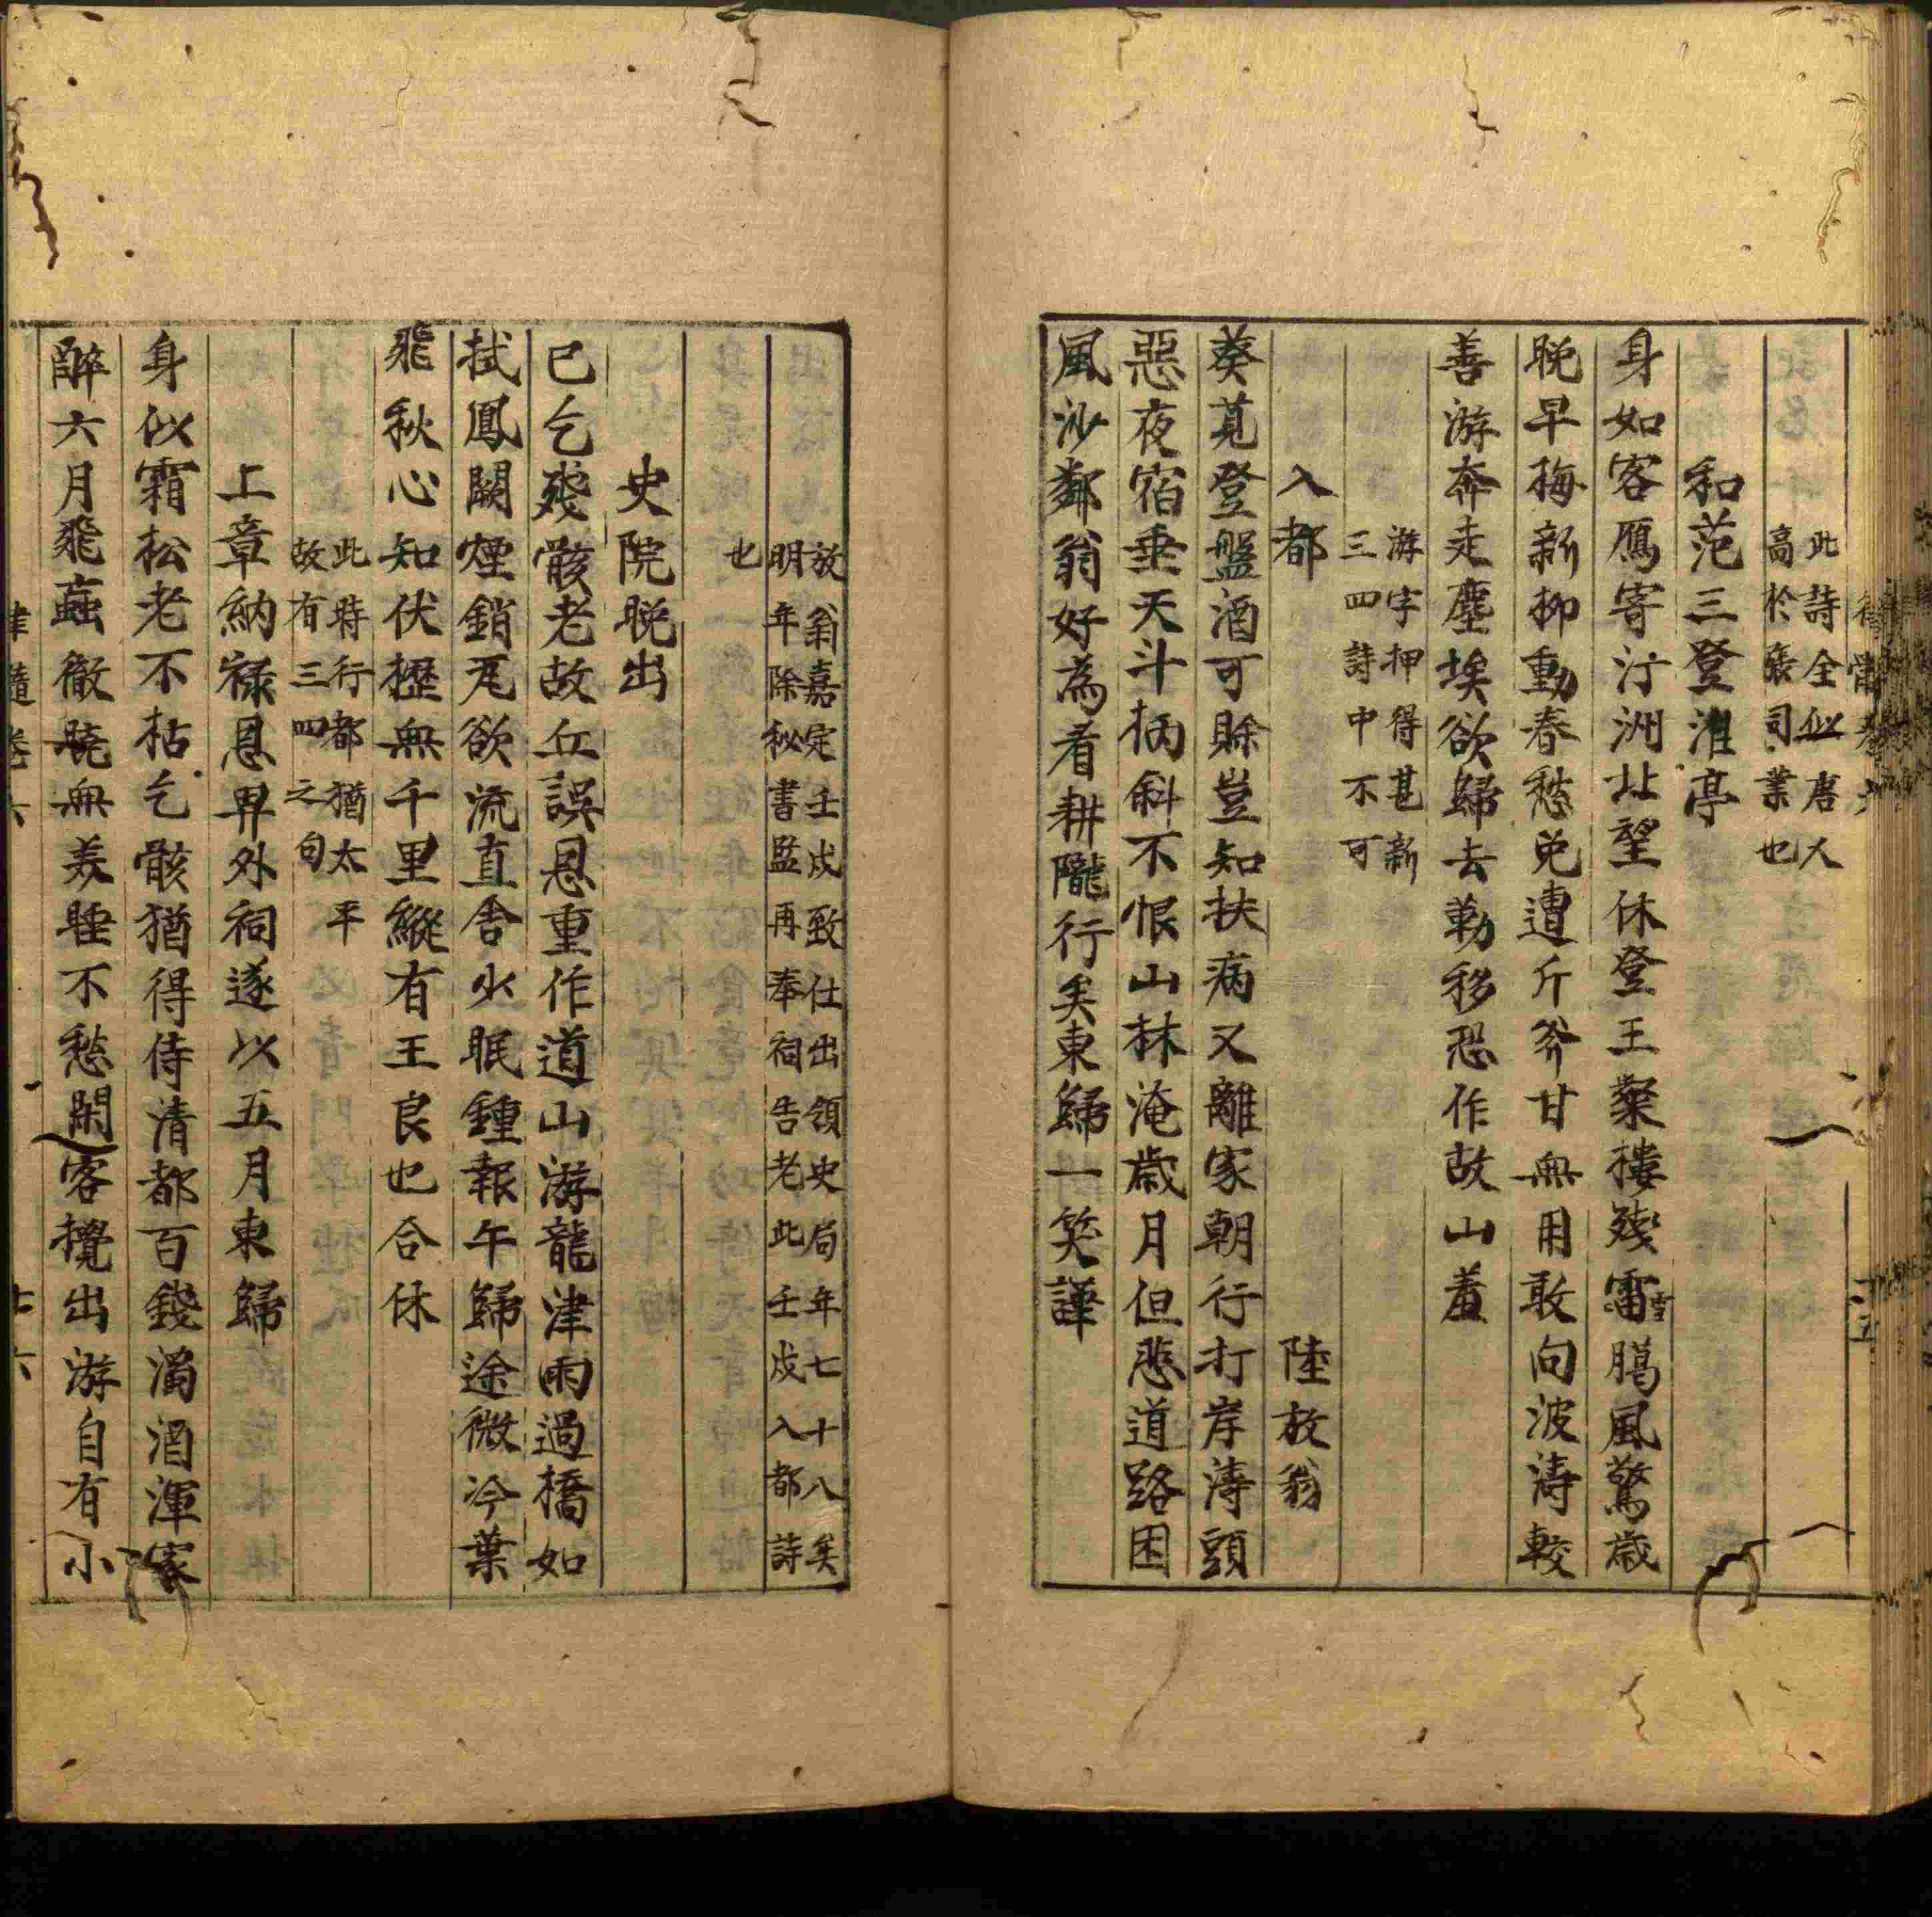 此詩全似唐人
高於張司業也
和范三登淮亭
身如客鴈寄汀洲北望休登王粲樓殘雷雪臈風驚歳
晚早梅新柳動春愁免遭斤斧甘無用敢向波濤較
善游奔走塵埃欲歸去勒移恐作故山羞
游字押得甚新
三四詩中不可
入都　陸放翁
葵莧登盤酒可賒豈知扶病又離家朝行打岸濤頭
惡夜宿垂天斗柄斜不恨山林淹歳月但悲道路困
風沙鄰翁好為看耕隴行矣東歸一笑譁
放翁嘉定壬戌致仕出領史局年七十八矣
明年除秘書監再奉祠告老此壬戌入都詩
也
史院晚出
已乞殘骸老故丘誤恩重作道山游龍津雨過橋如
拭鳳闕煙銷瓦欲流直舍少眠鍾報午歸途微冷葉
飛秋心知伏櫪無千里縱有王良也合休
此時行都猶太平
故有三四之句
上章納禄恩畀外祠遂以五月東歸
身似霜松老不枯乞骸猶得侍清都百錢濁酒渾家
醉六月飛蝱徹曉無美睡不愁閑客攪出游自有小